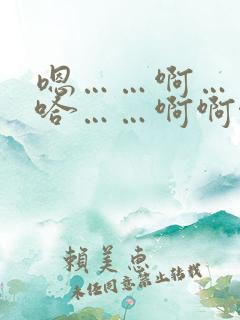 嗯……啊…
哈……啊啊
賴美惠
未经同意禁止转载